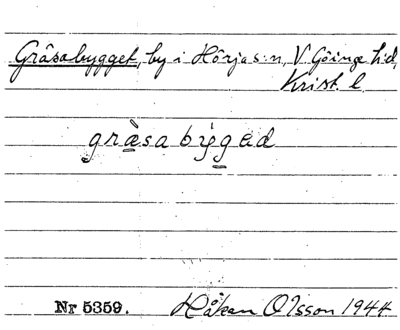 Gråsabygget, by i Hörja s:n, V. Göinge hd,
Krist. l
gràsa býged
Nr 5359. Håkan Olsson 1944